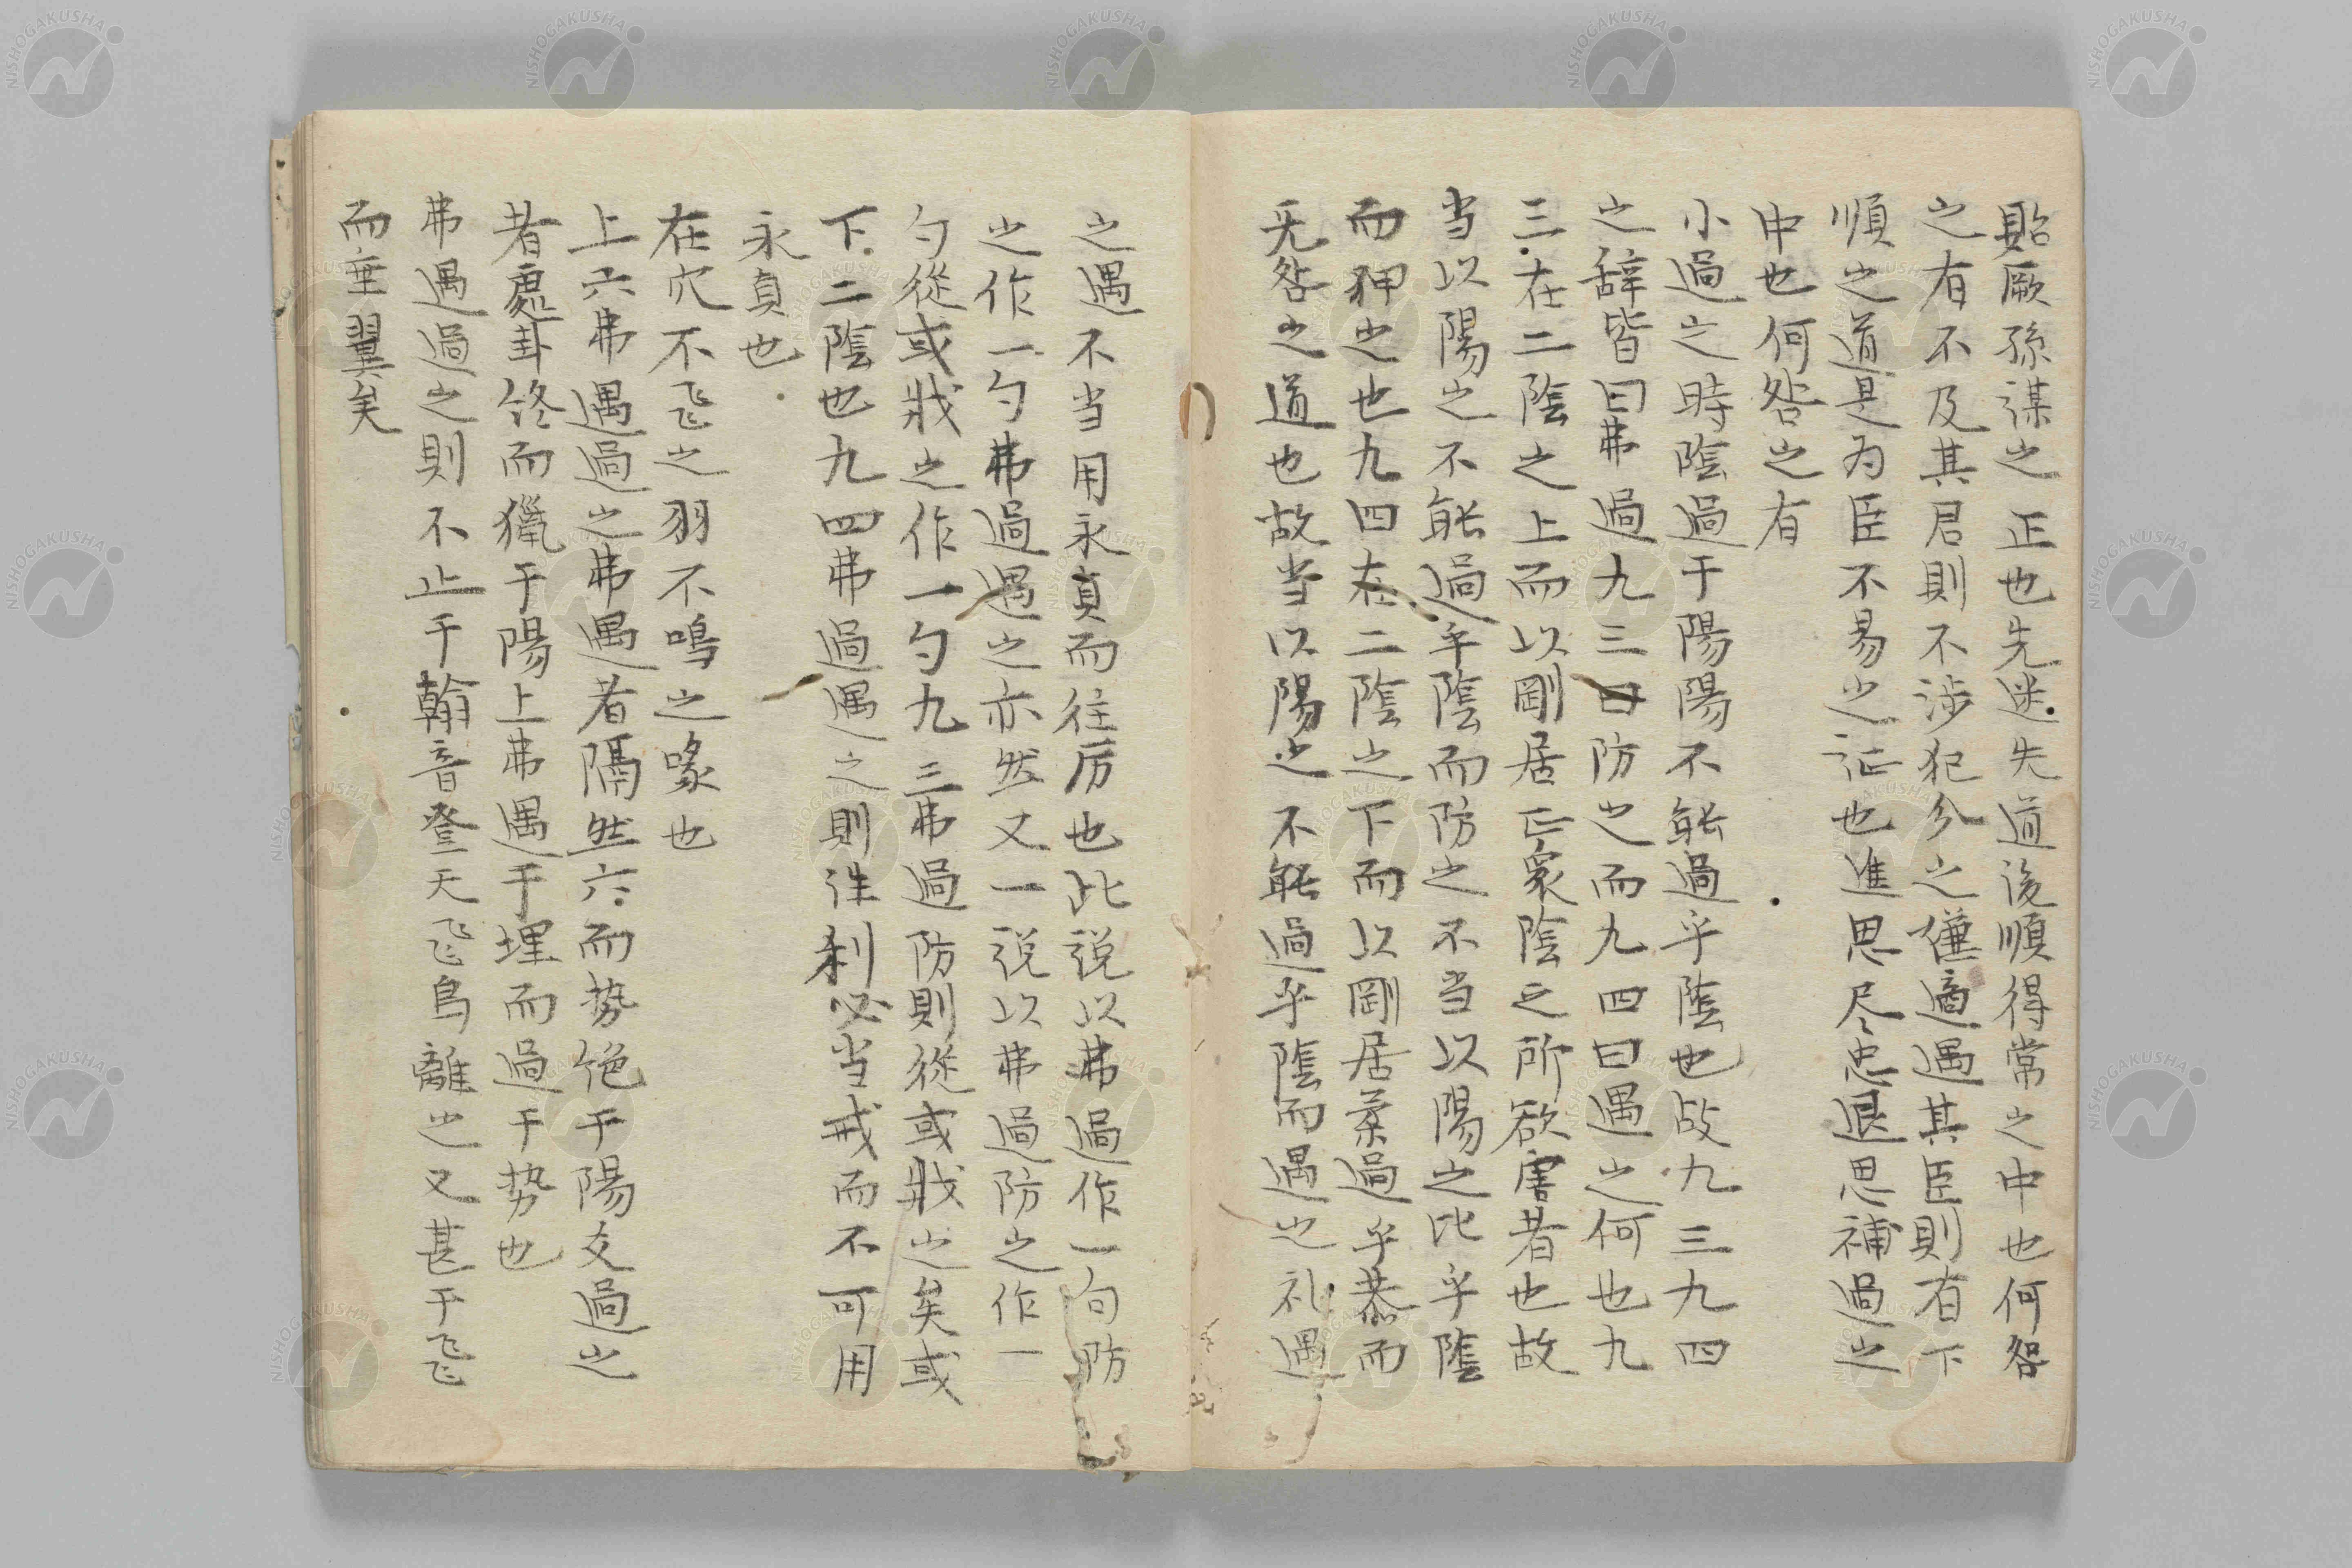 貽厥孫謀之正也先迷失道後順得常之中也何咎
之有不及其君則不渉犯分之僅適遇其臣則有下
順之道是為臣不易之讵也進思尽忠退思補過之
中也何咎之有
小過之時陰過于陽陽不能過乎陰也故九三九四
之辞皆曰弗過九三曰防之而九四曰遇之何也九
三在二陰之上而以剛居正衆陰之所欲害者也故
当以陽之不能過乎陰而防之不当以陽之比乎陰
而狎之也九四在二陰之下而以剛居柔過乎恭而
无咎之道也故当以陽之不能過乎陰而遇之礼遇
之遇不当用永貞而往厉也此説以弗過作一句防
之作一勺弗過遇之亦然又一説以弗過防之作一
勺從或戕之作一勺九三弗過防則從或戕之矣或
下二陰也九四弗過遇之則往刹必当戒而不可用
永貞也
在穴不飞之羽不鳴之喙也
上六弗遇過之弗遇者隔然六而势绝于陽爻過之
者處卦终而獵于陽上弗遇于埋而過于势也
弗遇過之則不止于翰音登天飞鳥離之又甚于飞
而垂翼矣
NISHOGAKUSHA